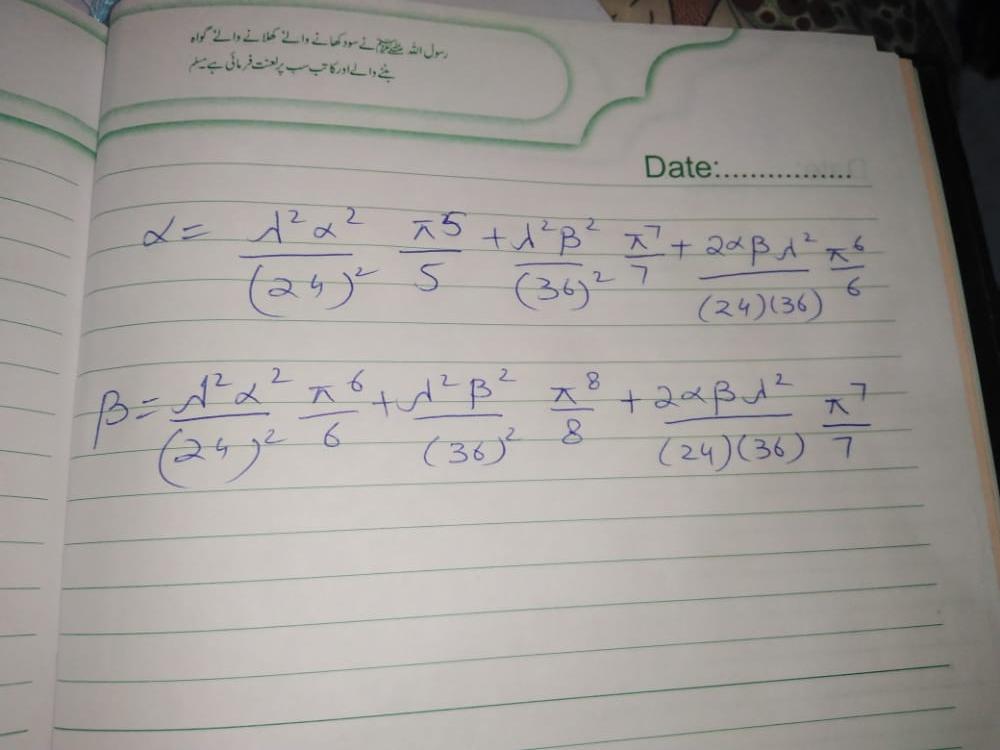 رسول اللہ ﷺ نے سود کھانے والے' کھلانے والے' گواہ
بننے والے اور کاتب سب پر لعنت فرمائی ہے مسلم
Date:...............
α = λ²α²/(24)² π⁵/5 + λ²β²/(36)² π⁷/7 + 2αβλ²/(24)(36) π⁶/6
β = λ²α²/(24)² π⁶/6 + λ²β²/(36)² π⁸/8 + 2αβλ²/(24)(36) π⁷/7